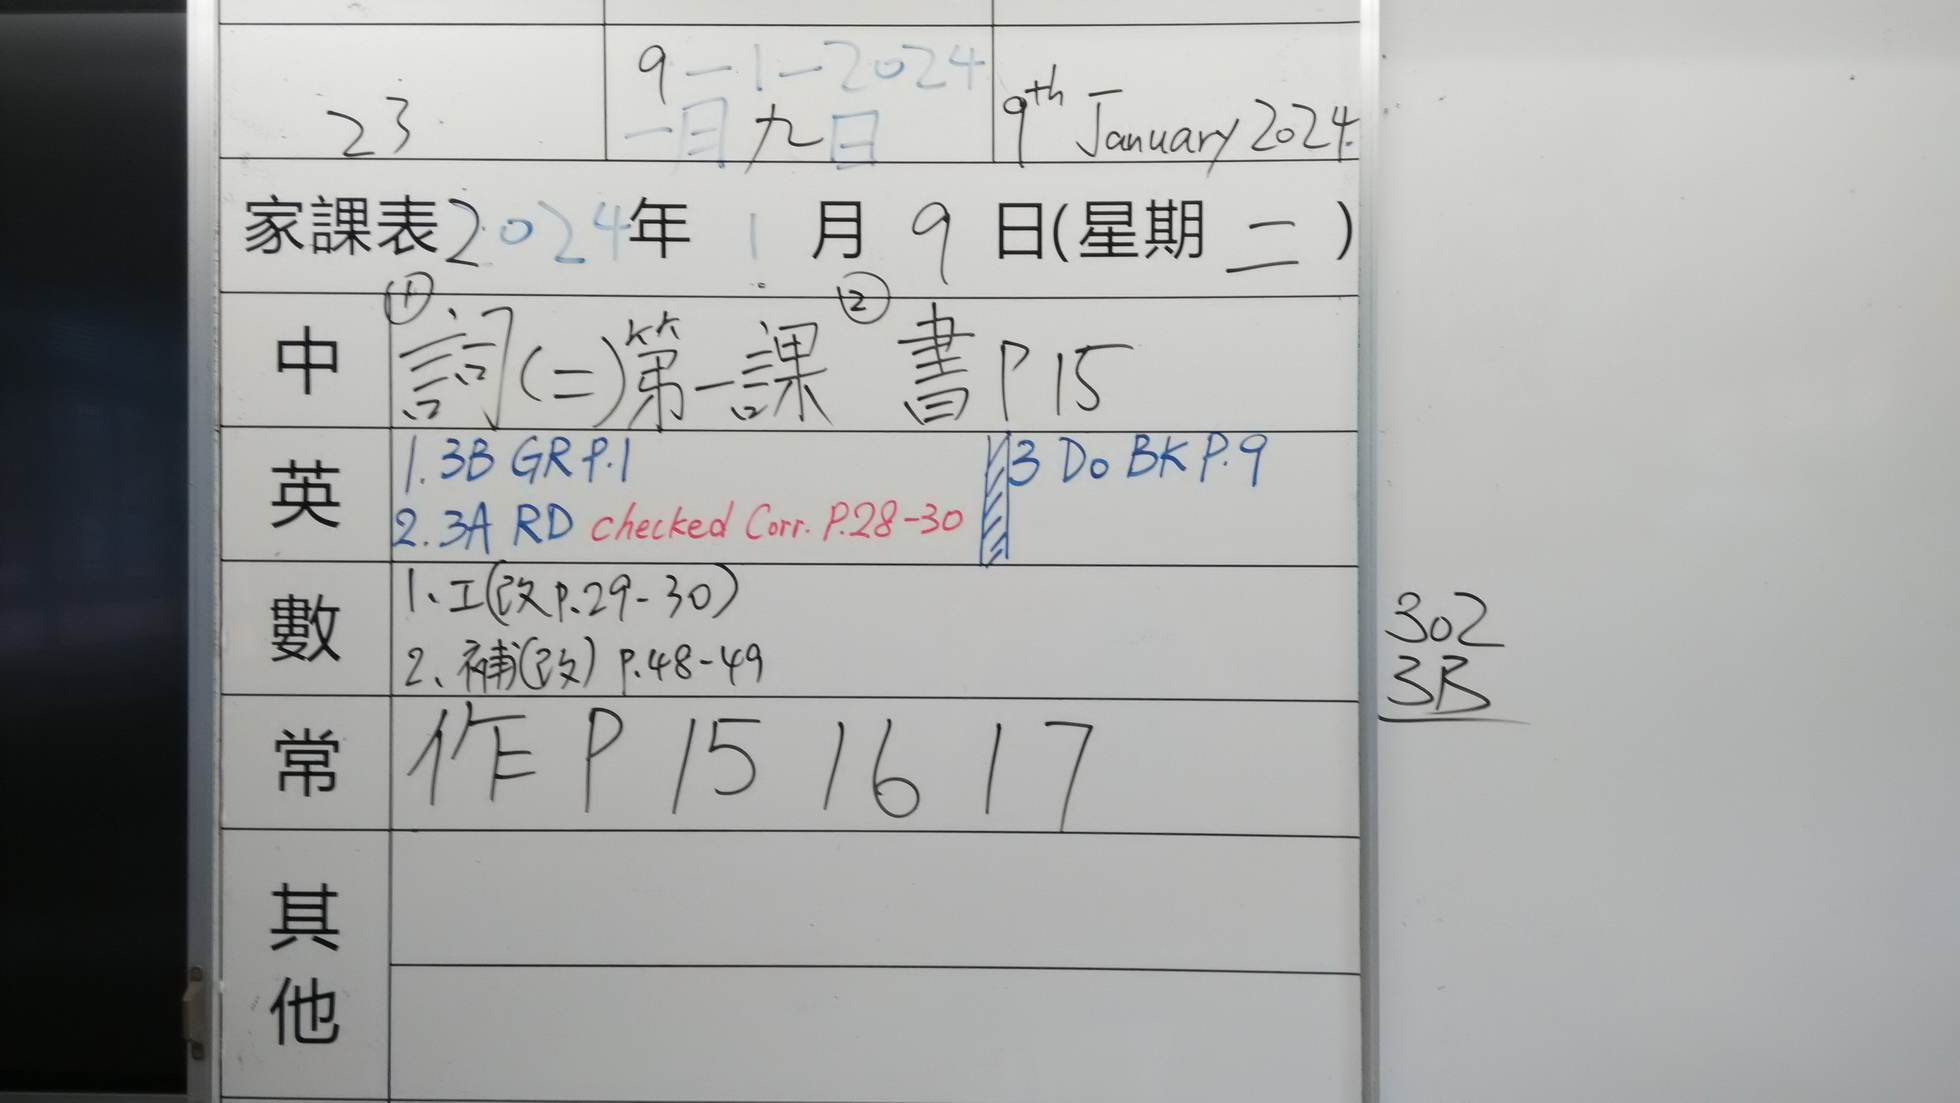 23
9-1-2024
一月九日
9th January 2024.
家課表2024年1月9日(星期二)
中
① 詞(二)第一課 ② 書P15
英
1. 3B GR P.1
2. 3A RD checked Corr. P.28-30
3 Do BK P.9
數
1、工(改P.29-30)
2、補(改) P.48-49
常
作 P 15 16 17
其他
302
3B